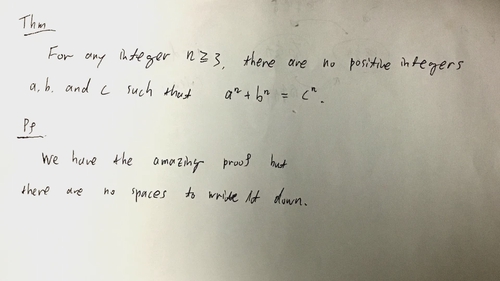 Thm
For any integer n ≥ 3, there are no positive integers
a, b, and c such that aⁿ + bⁿ = cⁿ.
Pf
We have the amazing proof but
there are no spaces to write it down.